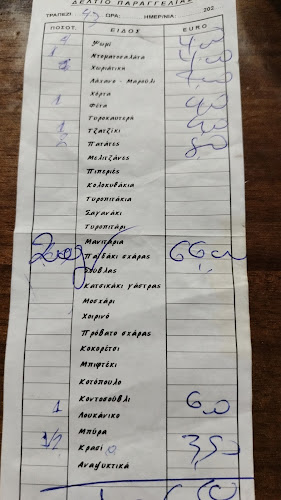 ΔΕΛΤΙΟ ΠΑΡΑΓΓΕΛΙΑΣ
ΤΡΑΠΕΖΙ ΩΡΑ: ΗΜΕΡ/ΝΙΑ: 202
ΠΟΣΟΤ. ΕΙΔΟΣ EURO
Ψωμί 4,00
1 Ντοματοσαλάτα
Χωριάτικη
Λάχανο - Μαρούλι
Χόρτα
1 Φέτα
Τυροκαυτερή
1 Τζατζίκι
2 Πατάτες 8,0
Μελιτζάνες
Πιπεριές
Κολοκυθάκια
Τυροπιτάκια
Σαγανάκι
Τυροπιτάρι
Μανιτάρια
Παϊδάκι σχάρας 66,00
Σούβλας
Κατσικάκι γάστρας
Μοσχάρι
Χοιρινό
Πρόβατο σχάρας
Κοκορέτσι
Μπιφτέκι
Κοτόπουλο
1 Κοντοσούβλι 6,0
Λουκάνικο
Μπύρα
1/2 Κρασί 3,50
Αναψυκτικά